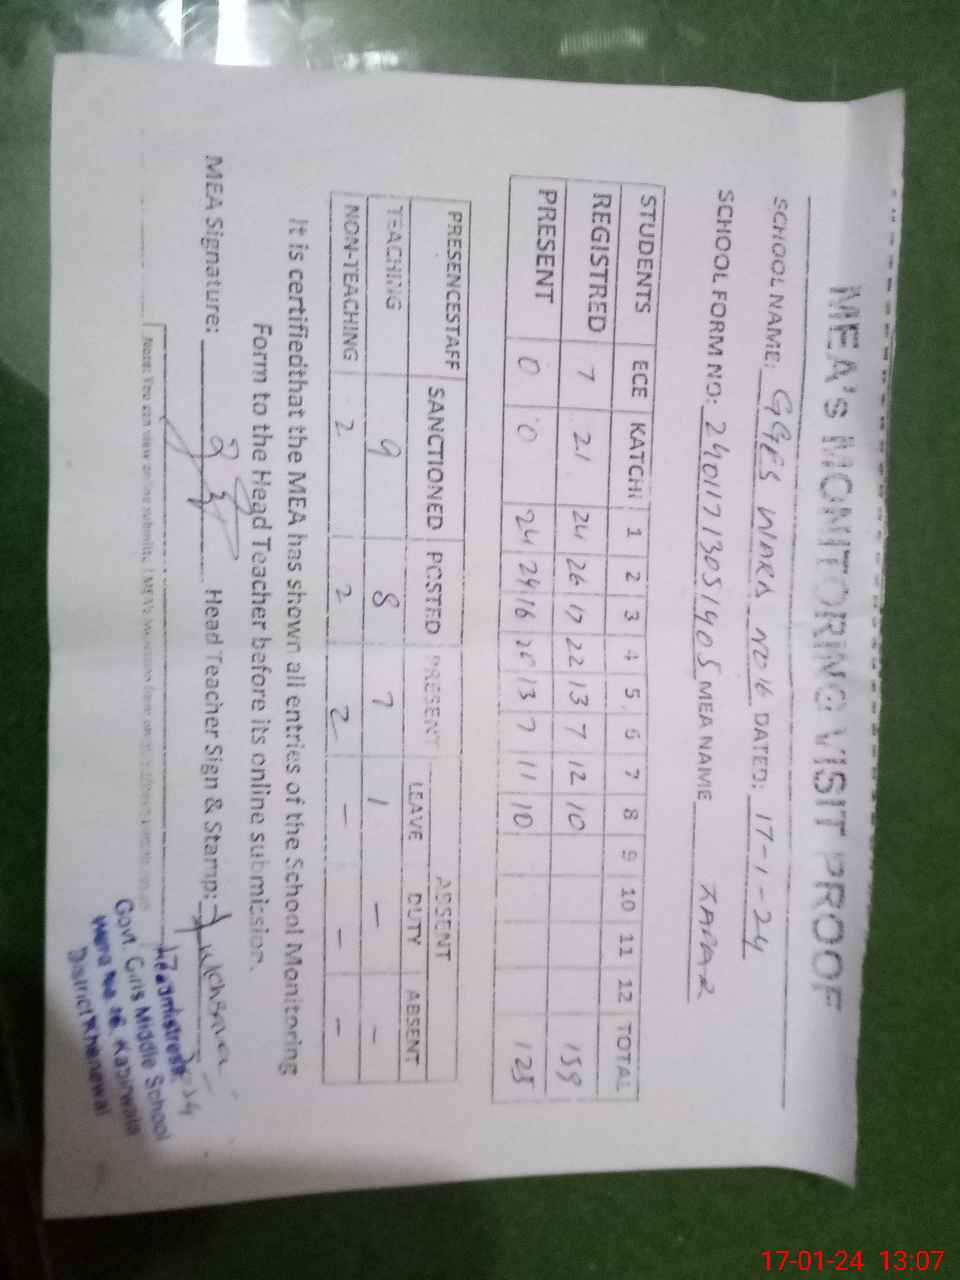 MEA'S MONITORING VISIT PROOF
SCHOOL NAME: GGES WARD NO 16 DATED: 17-1-24
SCHOOL FORM NO: 24011713051905 MEA NAME ZAFAR
STUDENTS ECE KATCHI 1 2 3 4 5 6 7 8 9 10 11 12 TOTAL
REGISTRED 7 21 24 26 17 22 13 7 12 10 159
PRESENT 0 0 24 24 16 20 13 7 11 10 125
PRESENCESTAFF SANCTIONED POSTED PRESENT ABSENT
LEAVE DUTY ABSENT
TEACHING 9 8 7 1 - -
NON-TEACHING 2 2 2 - - -
It is certifiedthat the MEA has shown all entries of the School Monitoring
Form to the Head Teacher before its online submission.
MEA Signature: Head Teacher Sign & Stamp:
Headmistress
Govt. Girls Middle School
Ward No 16, Kabirwala
District Khanewal
Note: You can view online submitted
17-01-24 13:07